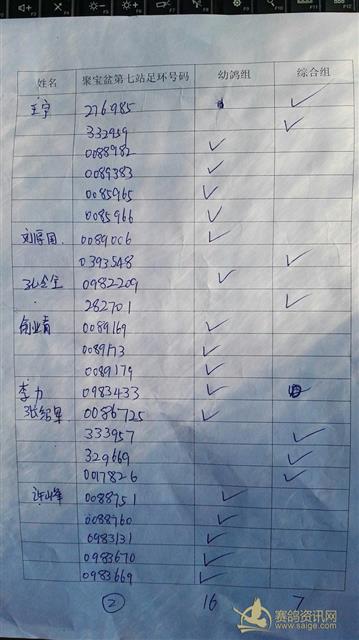 姓名 聚宝盆第七站足环号码 幼鸽组 综合组
王宇 276985 ✓
332959 ✓
0088982 ✓
0089383 ✓
0085965 ✓
0085966 ✓
0089006 ✓
0393548 ✓
0982209 ✓
282701 ✓
0089169 ✓
0089173 ✓
0089179 ✓
李力 0983433 ✓
0086725 ✓
333957 ✓
329669 ✓
0017826 ✓
0088751 ✓
0088760 ✓
0983131 ✓
0983670 ✓
0983669 ✓
② 16 7
赛鸽资讯网
www.saige.com